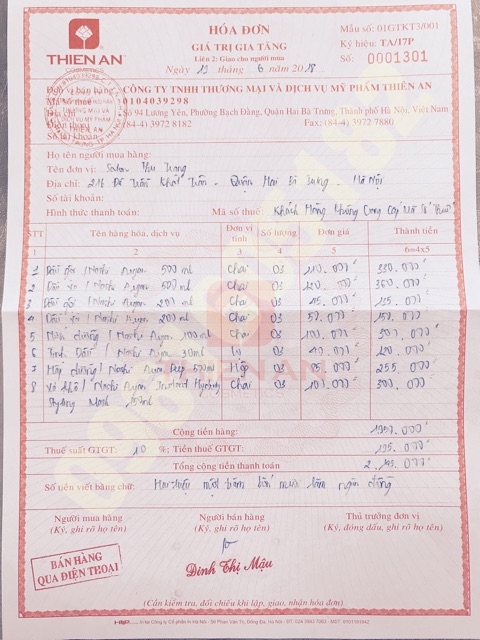 THIEN AN
HÓA ĐƠN
GIÁ TRỊ GIA TĂNG
Liên 2: Giao cho người mua
Ngày 13 tháng 6 năm 2018
Mẫu số: 01GTKT3/001
Ký hiệu: TA/17P
Số: 0001301
Đơn vị bán hàng: CÔNG TY TNHH THƯƠNG MẠI VÀ DỊCH VỤ MỸ PHẨM THIÊN AN
Mã số thuế: 0104039298
Địa chỉ: Số 94 Lương Yên, Phường Bạch Đằng, Quận Hai Bà Trưng, Thành phố Hà Nội, Việt Nam
Điện thoại: (84-4) 3972 8182 Fax: (84-4) 3972 7880
Số tài khoản:
Họ tên người mua hàng:
Tên đơn vị: Salon Thu Trang
Địa chỉ: Trần Khát Chân - Quận Hai Bà Trưng - Hà Nội
Số tài khoản:
Hình thức thanh toán: Mã số thuế: Khách Hàng Không Cung Cấp Mã Số Thuế
STT Tên hàng hóa, dịch vụ Đơn vị tính Số lượng Đơn giá Thành tiền
1 2 3 4 5 6=4x5
1 Dầu gội / Nashi Argan 500 ml Chai 03 110.000 330.000
2 Dầu xả / Nashi Argan 500 ml Chai 03 120.000 360.000
3 Dầu gội / Nashi Argan 200 ml Chai 03 45.000 135.000
4 Dầu xả / Nashi Argan 200 ml Chai 03 150.000
5 dưỡng / Nashi Argan 100 ml Chai 03 100.000 300.000
6 Tinh Dầu / Nashi Argan 30ml 03 40.000 120.000
7 Hấp dưỡng / Nashi Argan Deep 500ml Hộp 03 85.000 255.000
8 Xả khô / Nashi Argan Instant Hydrating Chai 03 100.000 300.000
Styling Mask 150ml
Cộng tiền hàng: 1950.000
Thuế suất GTGT: 10 %: Tiền thuế GTGT: 195.000
Tổng cộng tiền thanh toán 2.145.000
Số tiền viết bằng chữ: Hai triệu một trăm bốn mươi lăm ngàn đồng
Người mua hàng Người bán hàng Thủ trưởng đơn vị
(Ký, ghi rõ họ tên) (Ký, ghi rõ họ tên) (Ký, đóng dấu, ghi rõ họ tên)
BÁN HÀNG
QUA ĐIỆN THOẠI
Đinh Thị Mậu
(Cần kiểm tra, đối chiếu khi lập, giao, nhận hóa đơn)